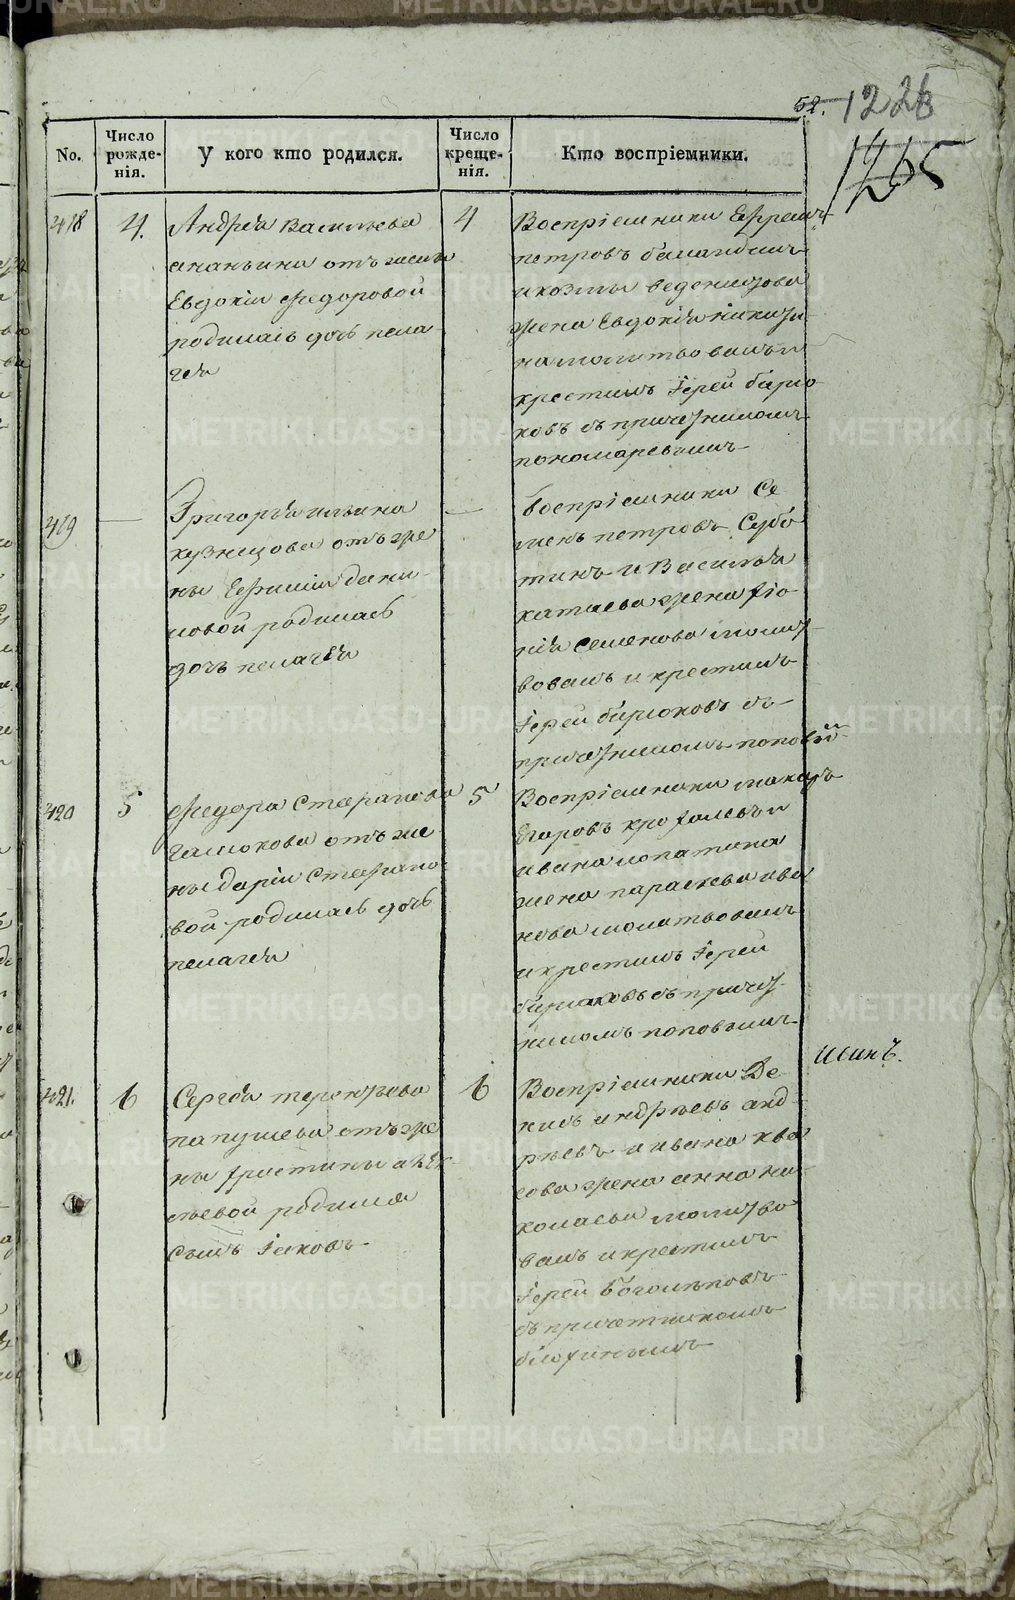 52. 1226
1265
No.
Число рожде-нія.
У кого кто родился.
Число креще-нія.
Кто воспріемники.
418
4.
Андрѣя Васильева
ананьина отъ жены
Евдокіи Ѳедоровой
родилась дочь пела
гея
4
Воспріемники Ефремъ
петровъ
и козмы
жена Евдокія
крестилъ Іерей бирю
ковъ съ причетникомъ
пономаревымъ
419
Григорья ильина
кузнецова отъ же
ны Ефиміи дани
ловой родилась
дочь пелагея
Воспріемники Се
менъ петровъ Субо
тинъ и Василья
катаева жена
семенова молит
вовалъ и крестилъ
Іерей бирюковъ съ
причетникомъ поповымъ
420
5
Ѳедора Стефанова
отъ же
ны дарьи Стефано
вой родилась дочь
пелагея
5
Воспріемники макаръ
Егоровъ
ивана лопатина
жена параскева ива
нова молитвовалъ
и крестилъ Іерей
бирюковъ съ причет
никомъ поповымъ
421.
6
Сергѣя терентьева
папушева отъ же
ны
родился
сынъ Іаковъ
6
Воспріемники Де
нисъ андреевъ анд
реевъ и ивана ква
сова жена анна ни
колаева молитво
валъ и крестилъ
Іерей Боголѣповъ
съ причетникомъ
METRIKI.GASO-URAL.RU